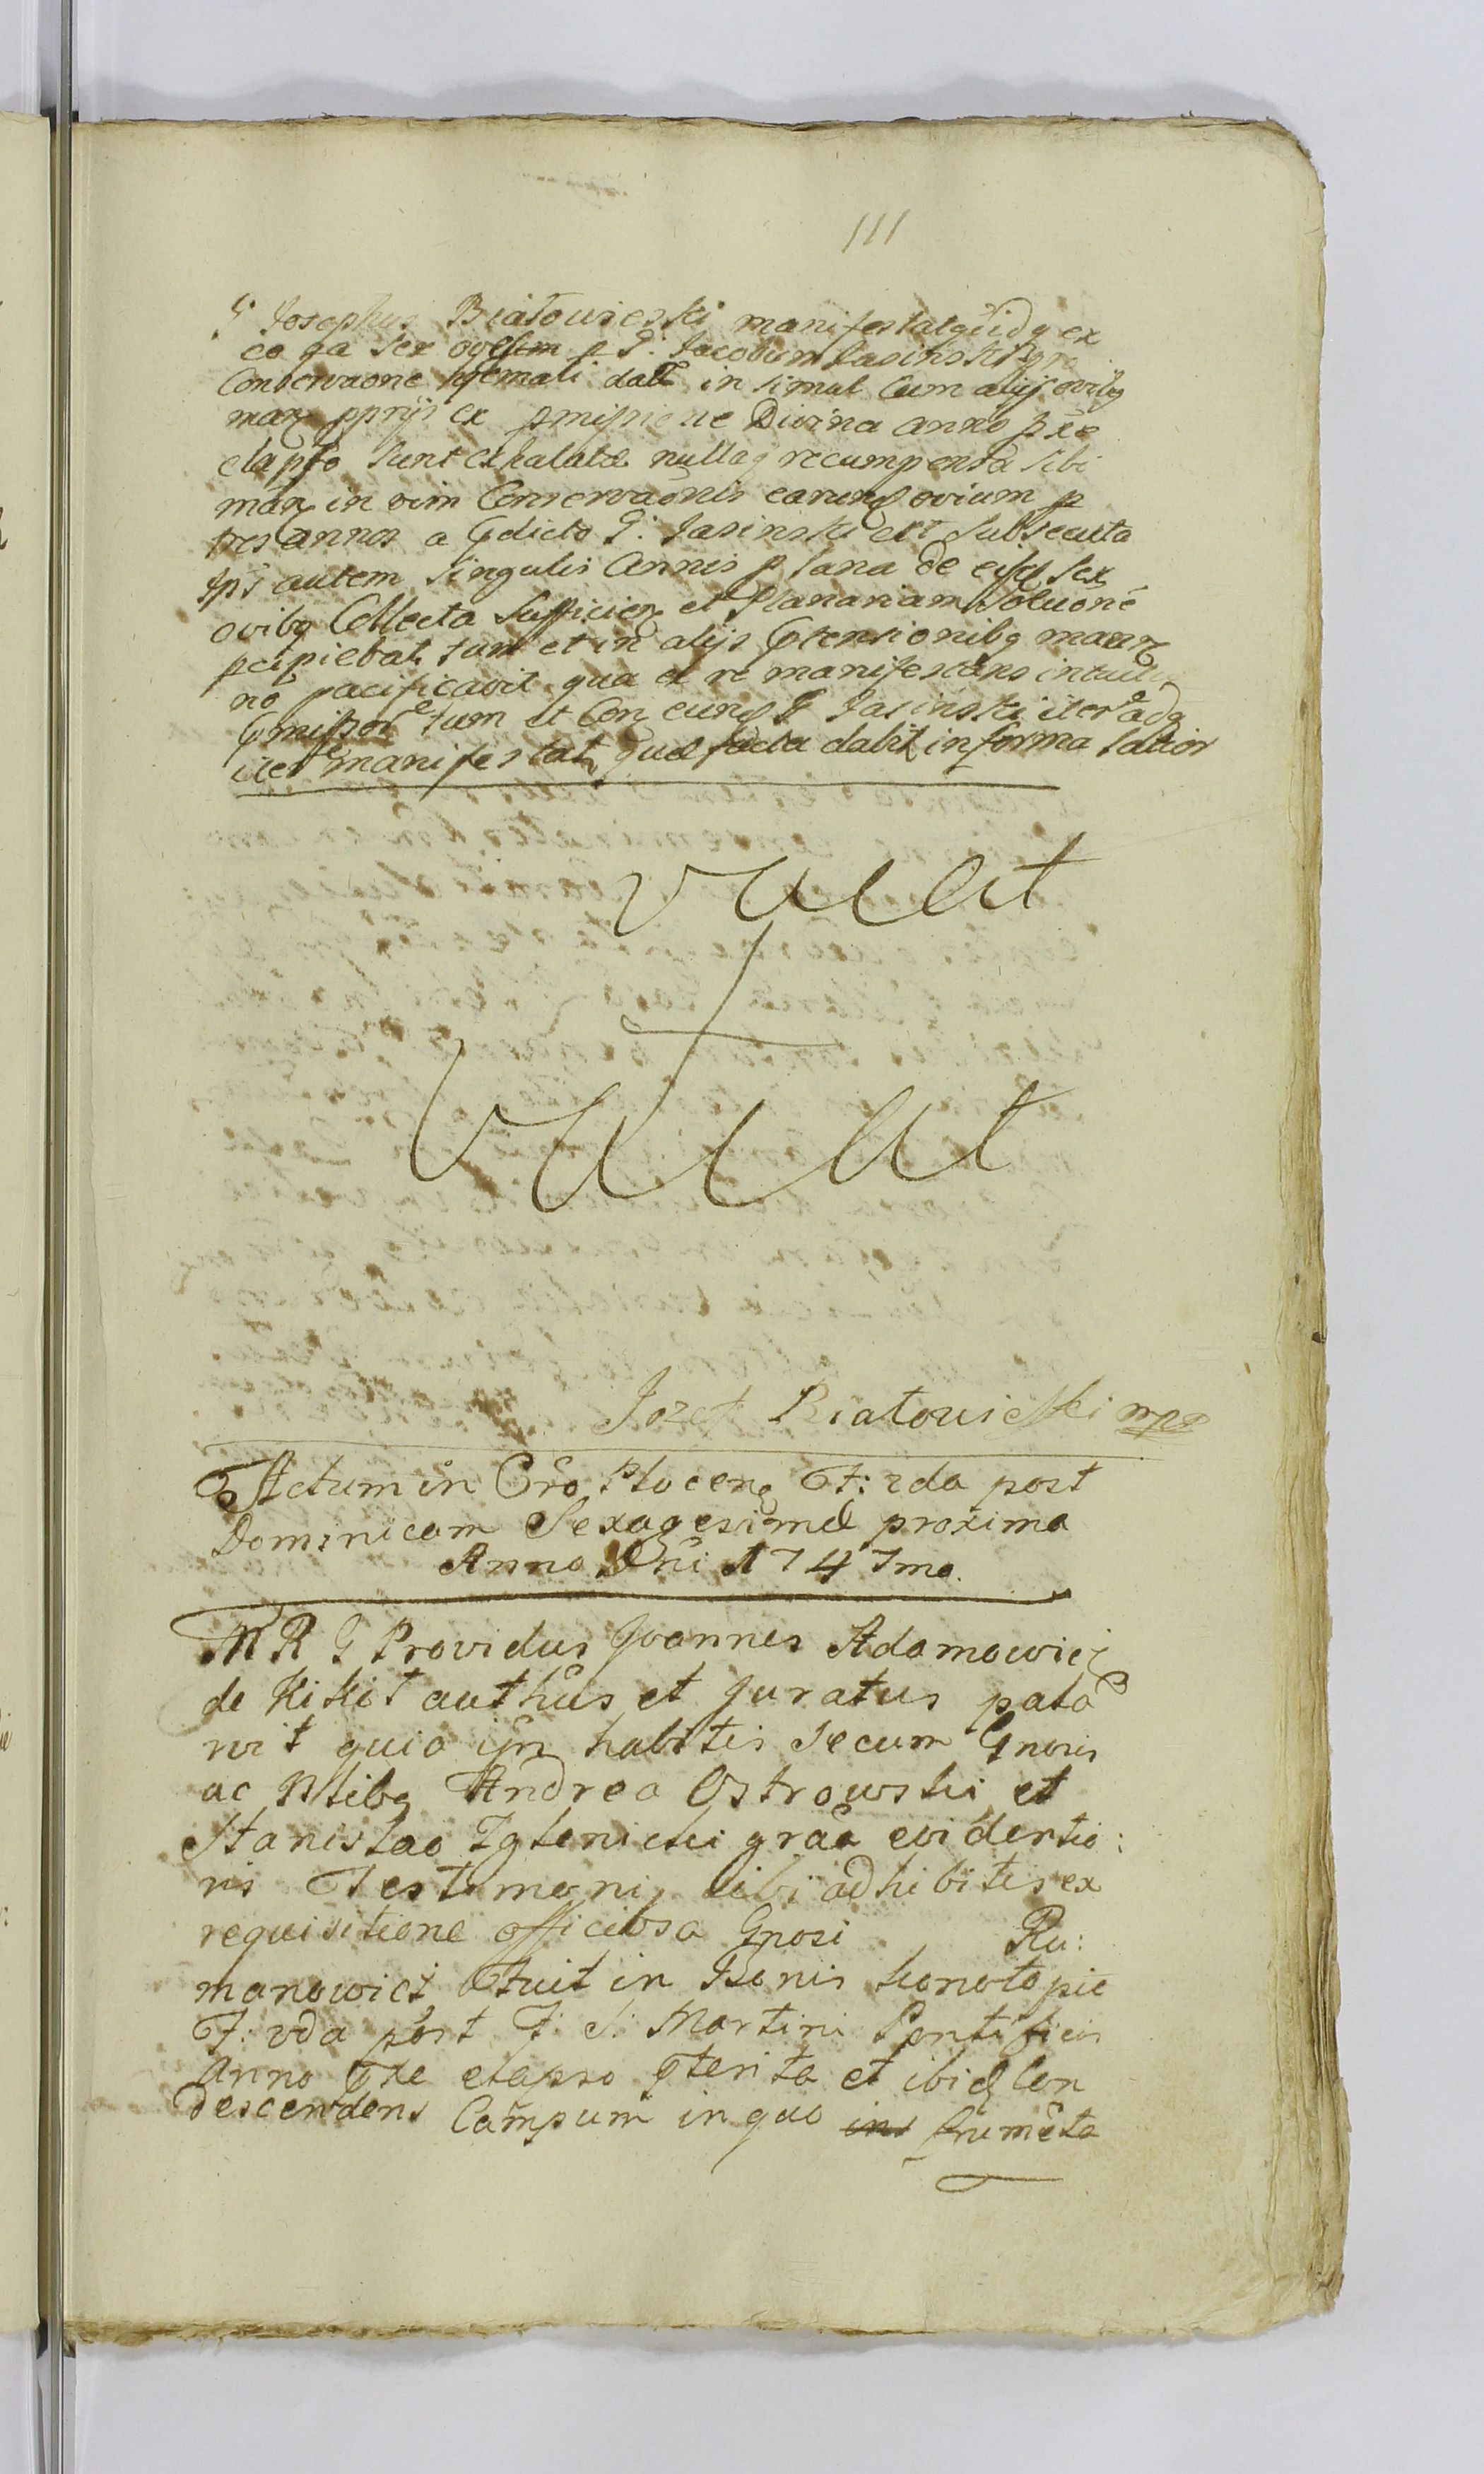 111
G: Josephus Białowieski manifestatq̃ eidq ex
eo qa sex oves p G: Jacobum Jasinski pro
Conservaone hyemali dat in simul Cum alijs ovibq
man pprijs ex pmissione Divina anno pxe
elapso sunt exhalatæ nullaq recumpensa sibi
man in vim Conservaõnis earund ovium p
tres annos a pdicto G: Jasinski est subsecuta
Ips autem singulis Annis p lana de eisd sex
ovibq Collecta Sufficien et planariam Soluoné
pcipiebat tum et in alijs ptensionibq man
no pacificavit qua et re manifestans intuitu
pmissor tum et Con eund G Jasinski iter adq
iter manifestat quæ facta dabit in forma latior
vacat
vacat
Jozef Białowieski mpp
Actum in Cro Plocen F: 2da post
Dominicam Sexagesimæ proxima
Anno Dni 1747mo.
M R G Providus Joannes Adamowicz
de Kikit authus et Juratus pala
vit quia ijn habitis secum Gnosis
ac Nlibq Andrea Ostrowski et
Stanislao Iglenicki graa evidentio:
ris Testimonij sibi adhibitis ex
requisitione officiosa Gnosi Ru:
manowicz Fuit in Bonis Konotopie
F: 2da post F: S: Martini Pontificis
Anno pxe elapso pterita et ibid Con
descendens Campum in quo frumēta